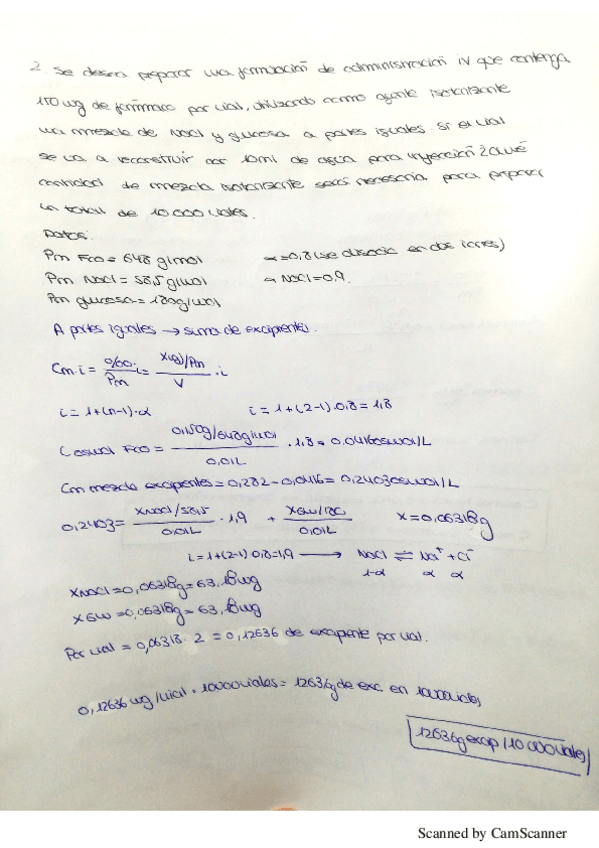 2. Se desea preparar una formulación de administración IV que contenga
150 mg de fármaco por vial, utilizando como agente isotonizante
una mezcla de NaCl y glucosa a partes iguales. Si el vial
se va a reconstruir con 10ml de agua para inyección ¿Qué
cantidad de mezcla isotonizante será necesaria para preparar
un total de 10 000 viales.
Datos:
Pm Fco = 648 g/mol α=0,8 (se disocia en dos iones)
Pm NaCl = 58,5 g/mol α NaCl=0,9.
Pm glucosa = 180g/mol
A partes iguales → suma de excipientes.
Cm·i = %00/Pm · i = X(g)/Pm / V · i
i = 1+(n-1)·α i = 1+(2-1)·0,8 = 1,8
C osmol Fco = 0,150g/648g/mol / 0,01L · 1,8 = 0,0416osmol/L
Cm mezcla excipientes = 0,282 - 0,0416 = 0,2403osmol/L
0,2403 = XNaCl/58,5 / 0,01L · 1,9 + XGlu/180 / 0,01L X = 0,06318g
i = 1+(2-1)·0,8 = 1,9 → NaCl ⇌ Na+ + Cl-
1-α α α
XNaCl = 0,06318g = 63,18mg
XGlu = 0,06318g = 63,18mg
Por vial = 0,06318 · 2 = 0,12636 de excipiente por vial.
0,12636 mg/vial · 10000viales = 1263,6g de exc. en 10000viales
1263,6g excip/10 000viales
Scanned by CamScanner